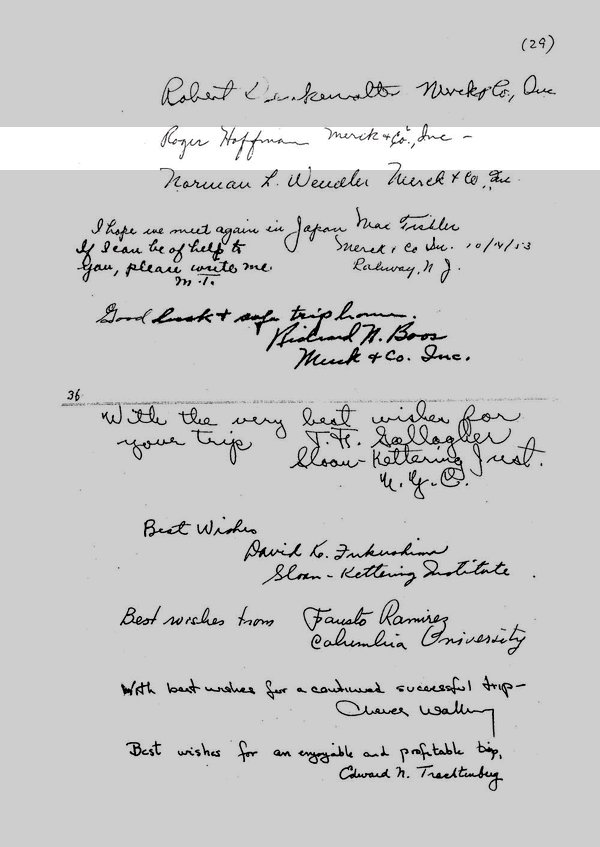 (29)
Robert Denkewalter Merck & Co., Inc
Roger Hoffman Merck & Co., Inc -
Norman L. Wendler Merck & Co., Inc
I hope we meet again in Japan Max Tishler
If I can be of help to Merck & Co Inc. 10/14/53
you, please write me Rahway, N J.
M.T.
Good luck & safe trip home.
Richard N. Boos
Merck & Co. Inc.
36
With the very best wishes for
your trip T. F. Gallagher
Sloan-Kettering Inst.
N.Y.C.
Best Wishes
David K. Fukushima
Sloan-Kettering Institute
Best wishes from Fausto Ramirez
Columbia University
With best wishes for a continued successful trip-
Cheves Walling
Best wishes for an enjoyable and profitable trip,
Edward N. Trachtenberg